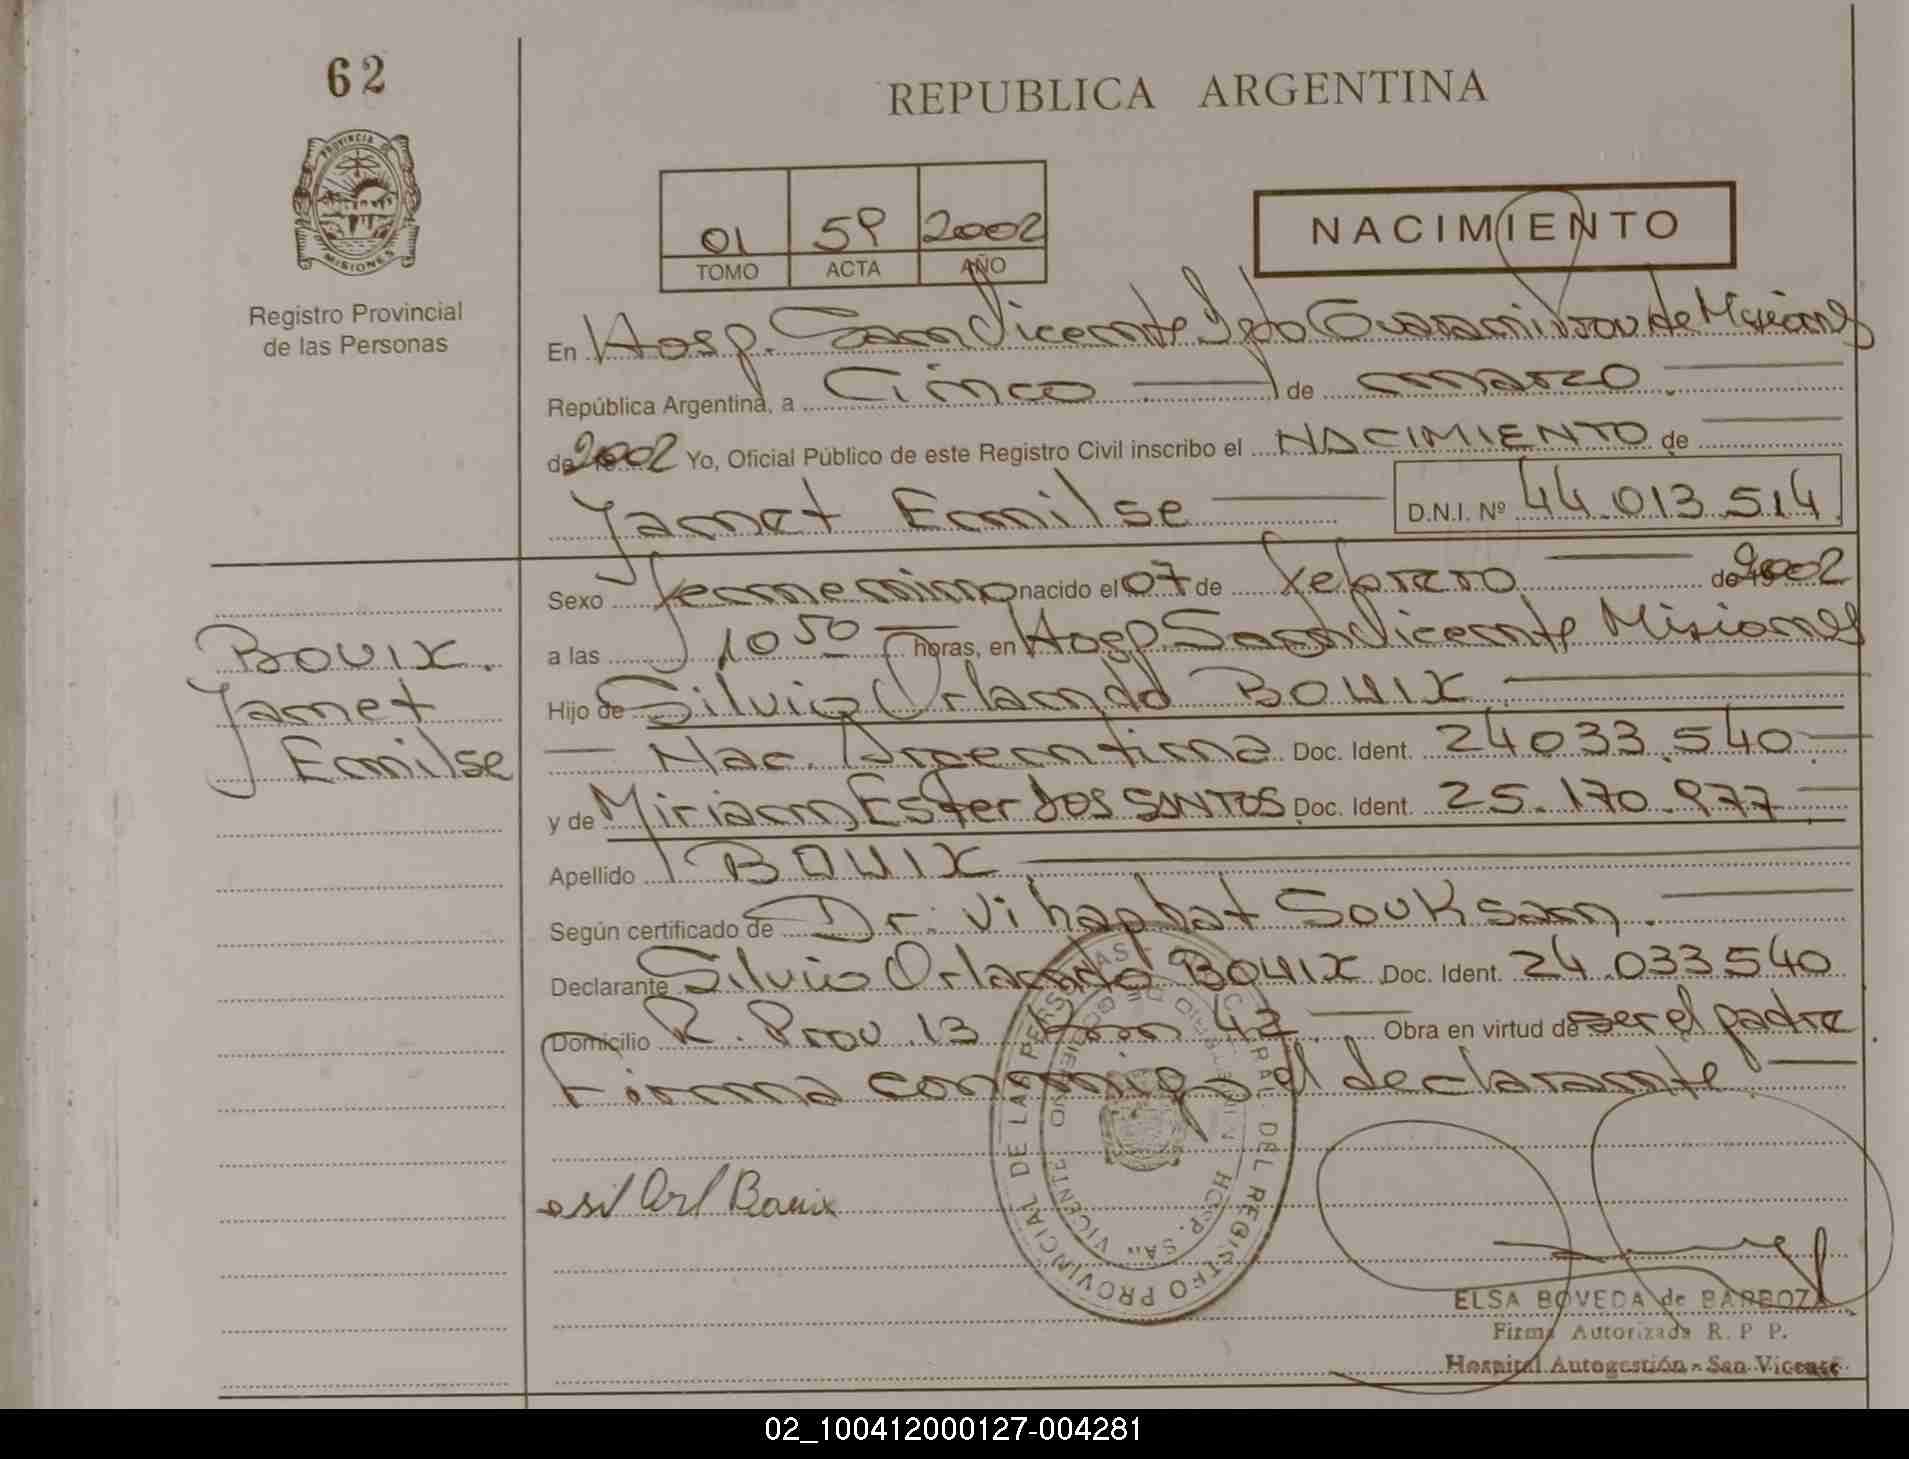 62
REPUBLICA ARGENTINA
PROVINCIA DE
MISIONES
Registro Provincial
de las Personas
01 59 2002
TOMO ACTA AÑO
NACIMIENTO
En Hosp. San Vicente Dpto Guarani Prov. de Misiones
República Argentina, a Cinco de marzo
de 2002 Yo, Oficial Público de este Registro Civil inscribo el NACIMIENTO de
Yanet Emilse D.N.I. Nº 44.013.514
BOUIX.
Yanet
Emilse
Sexo femenino nacido el 07 de febrero de 2002
a las 10 50 horas, en Hosp San Vicente Misiones
Hijo de Silvio Orlando BOUIX
Nac. Argentina Doc. Ident. 24.033.540
y de Miriam Ester dos SANTOS Doc. Ident. 25.170.977
Apellido BOUIX
Según certificado de Dr. Vihaphat Souksan.
Declarante Silvio Orlando BOUIX Doc. Ident. 24.033540
Domicilio R. Prov. 13 Km 42 Obra en virtud de ser el padre
Firma conmigo el declarante
Orl Bouix
PROVINCIAL DE LAS PERSONAS
DEL REGISTRO
HOSP. SAN VICENTE
ELSA BOVEDA de BARBOZA
Firma Autorizada R. P P.
Hospital Autogestión - San Vicente
02_100412000127-004281